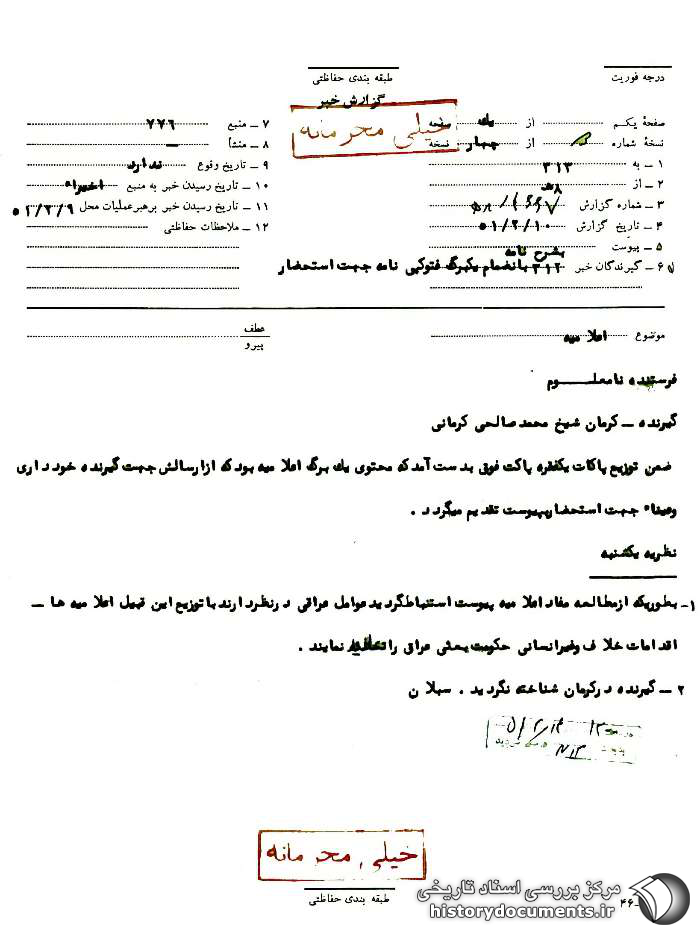 درجه فوریت
طبقه بندی حفاظتی
گزارش خبر
خیلی محرمانه
صفحهٔ یکم از یک صفحه
نسخهٔ شماره از چهار نسخهٔ
۱ - به ۳۱۳
۲ - از ۸ هـ
۳ - شماره گزارش
۴ - تاریخ گزارش ۵۱/۲/۱۰
۵ - پیوست بشرح نامه
۶ - گیرندگان خبر ۳۱۲ باانضمام یکبرگ فتوکپی نامه جهت استحضار
۷ - منبع ۷۷۶
۸ - منشأ -
۹ - تاریخ وقوع ندارد
۱۰ - تاریخ رسیدن خبر به منبع اخیراً
۱۱ - تاریخ رسیدن خبر برهبرعملیات محل ۵۱/۲/۹
۱۲ - ملاحظات حفاظتی
موضوع اعلامیه
عطف
پیرو
فرستنده نامعلوم
گیرنده - کرمان شیخ محمدصالحی کرمانی
ضمن توزیع پاکات یکفقره پاکت فوق بدست آمدکه محتوی یک برگ اعلامیه بودکه ازارسالش جهت گیرنده خودداری
وعیناً جهت استحضارپیوست تقدیم میگردد .
نظریه یکشنبه
۱- بطوریکه ازمطالعه مفاداعلامیه پیوست استنباطگردیدعوامل عراقی درنظردارندباتوزیع این قبیل اعلامیه ها -
اقدامات خلاف وغیرانسانی حکومت بعثی عراق را نمایند .
۲ - گیرنده درکرمان شناخته نگردید . سبلان
خیلی محرمانه
طبقه بندی حفاظتی
۴۶-
مرکز بررسی اسناد تاریخی
historydocuments.ir